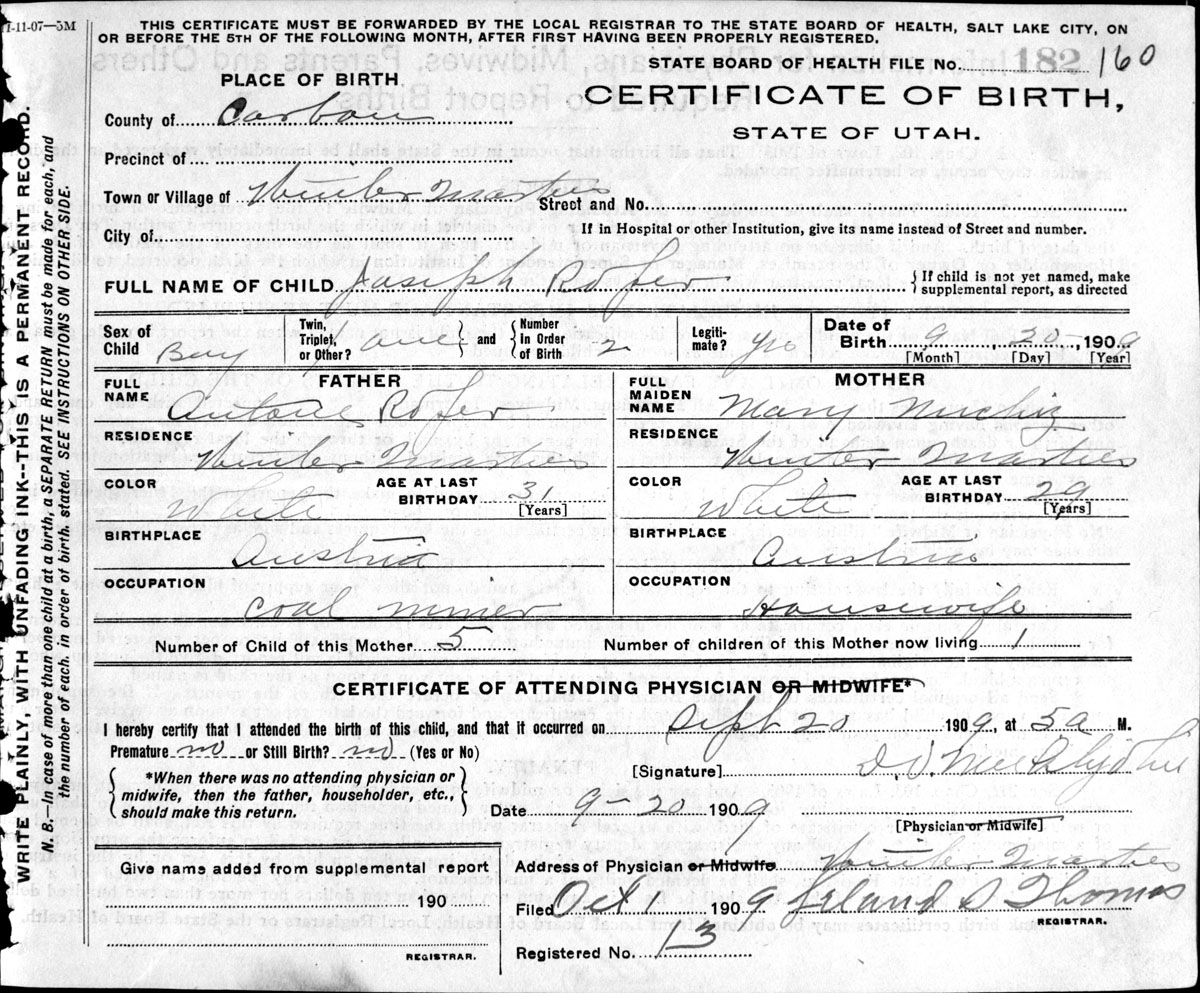 11-11-07—5M
THIS CERTIFICATE MUST BE FORWARDED BY THE LOCAL REGISTRAR TO THE STATE BOARD OF HEALTH, SALT LAKE CITY, ON
OR BEFORE THE 5TH OF THE FOLLOWING MONTH, AFTER FIRST HAVING BEEN PROPERLY REGISTERED.
WRITE PLAINLY, WITH UNFADING INK--THIS IS A PERMANENT RECORD.
N. B.—In case of more than one child at a birth, a SEPARATE RETURN must be made for each, and
the number of each, in order of birth, stated. SEE INSTRUCTIONS ON OTHER SIDE.
STATE BOARD OF HEALTH FILE No. 182 160
PLACE OF BIRTH
CERTIFICATE OF BIRTH,
STATE OF UTAH.
County of Carbon
Precinct of
Town or Village of Winter
Street and No.
City of
If in Hospital or other Institution, give its name instead of Street and number.
FULL NAME OF CHILD Joseph
If child is not yet named, make
supplemental report, as directed
Sex of Child Boy
Twin, Triplet, or Other? and Number in Order of Birth 2
Legitimate? yes
Date of Birth 9 20, 1909
[Month] [Day] [Year]
FATHER
FULL NAME Antone
RESIDENCE Winter
COLOR White
AGE AT LAST BIRTHDAY 31
[Years]
BIRTHPLACE Austria
OCCUPATION Coal miner
MOTHER
FULL MAIDEN NAME Mary
RESIDENCE Winter
COLOR White
AGE AT LAST BIRTHDAY 29
[Years]
BIRTHPLACE Austria
OCCUPATION Housewife
Number of Child of this Mother 5
Number of children of this Mother now living 1
CERTIFICATE OF ATTENDING PHYSICIAN OR MIDWIFE*
I hereby certify that I attended the birth of this child, and that it occurred on Sept 20 1909, at 5a M.
Premature no or Still Birth? no (Yes or No)
*When there was no attending physician or
midwife, then the father, householder, etc.,
should make this return.
[Signature]
Date 9-20 1909
[Physician or Midwife]
Give name added from supplemental report
190
REGISTRAR.
Address of Physician or Midwife Winter
Filed Oct 1 1909 Leland S Thomas
REGISTRAR.
Registered No. 13